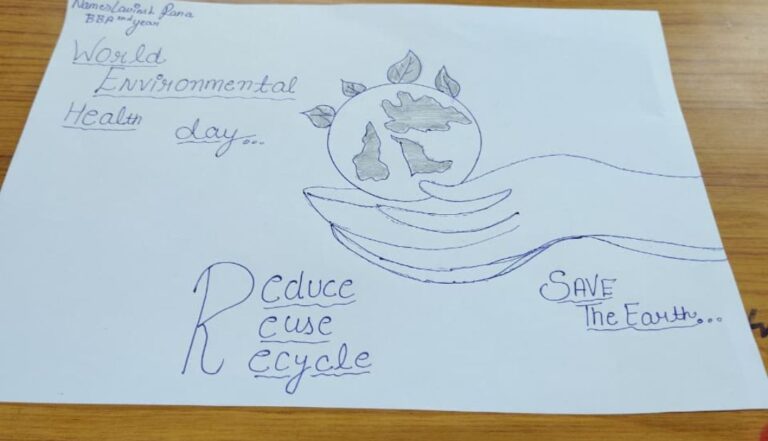 Name:Lavinsh Rana
BBA 2nd year
World
Environmental
Health day...
Reduce
Reuse
Recycle
SAVE
The Earth...